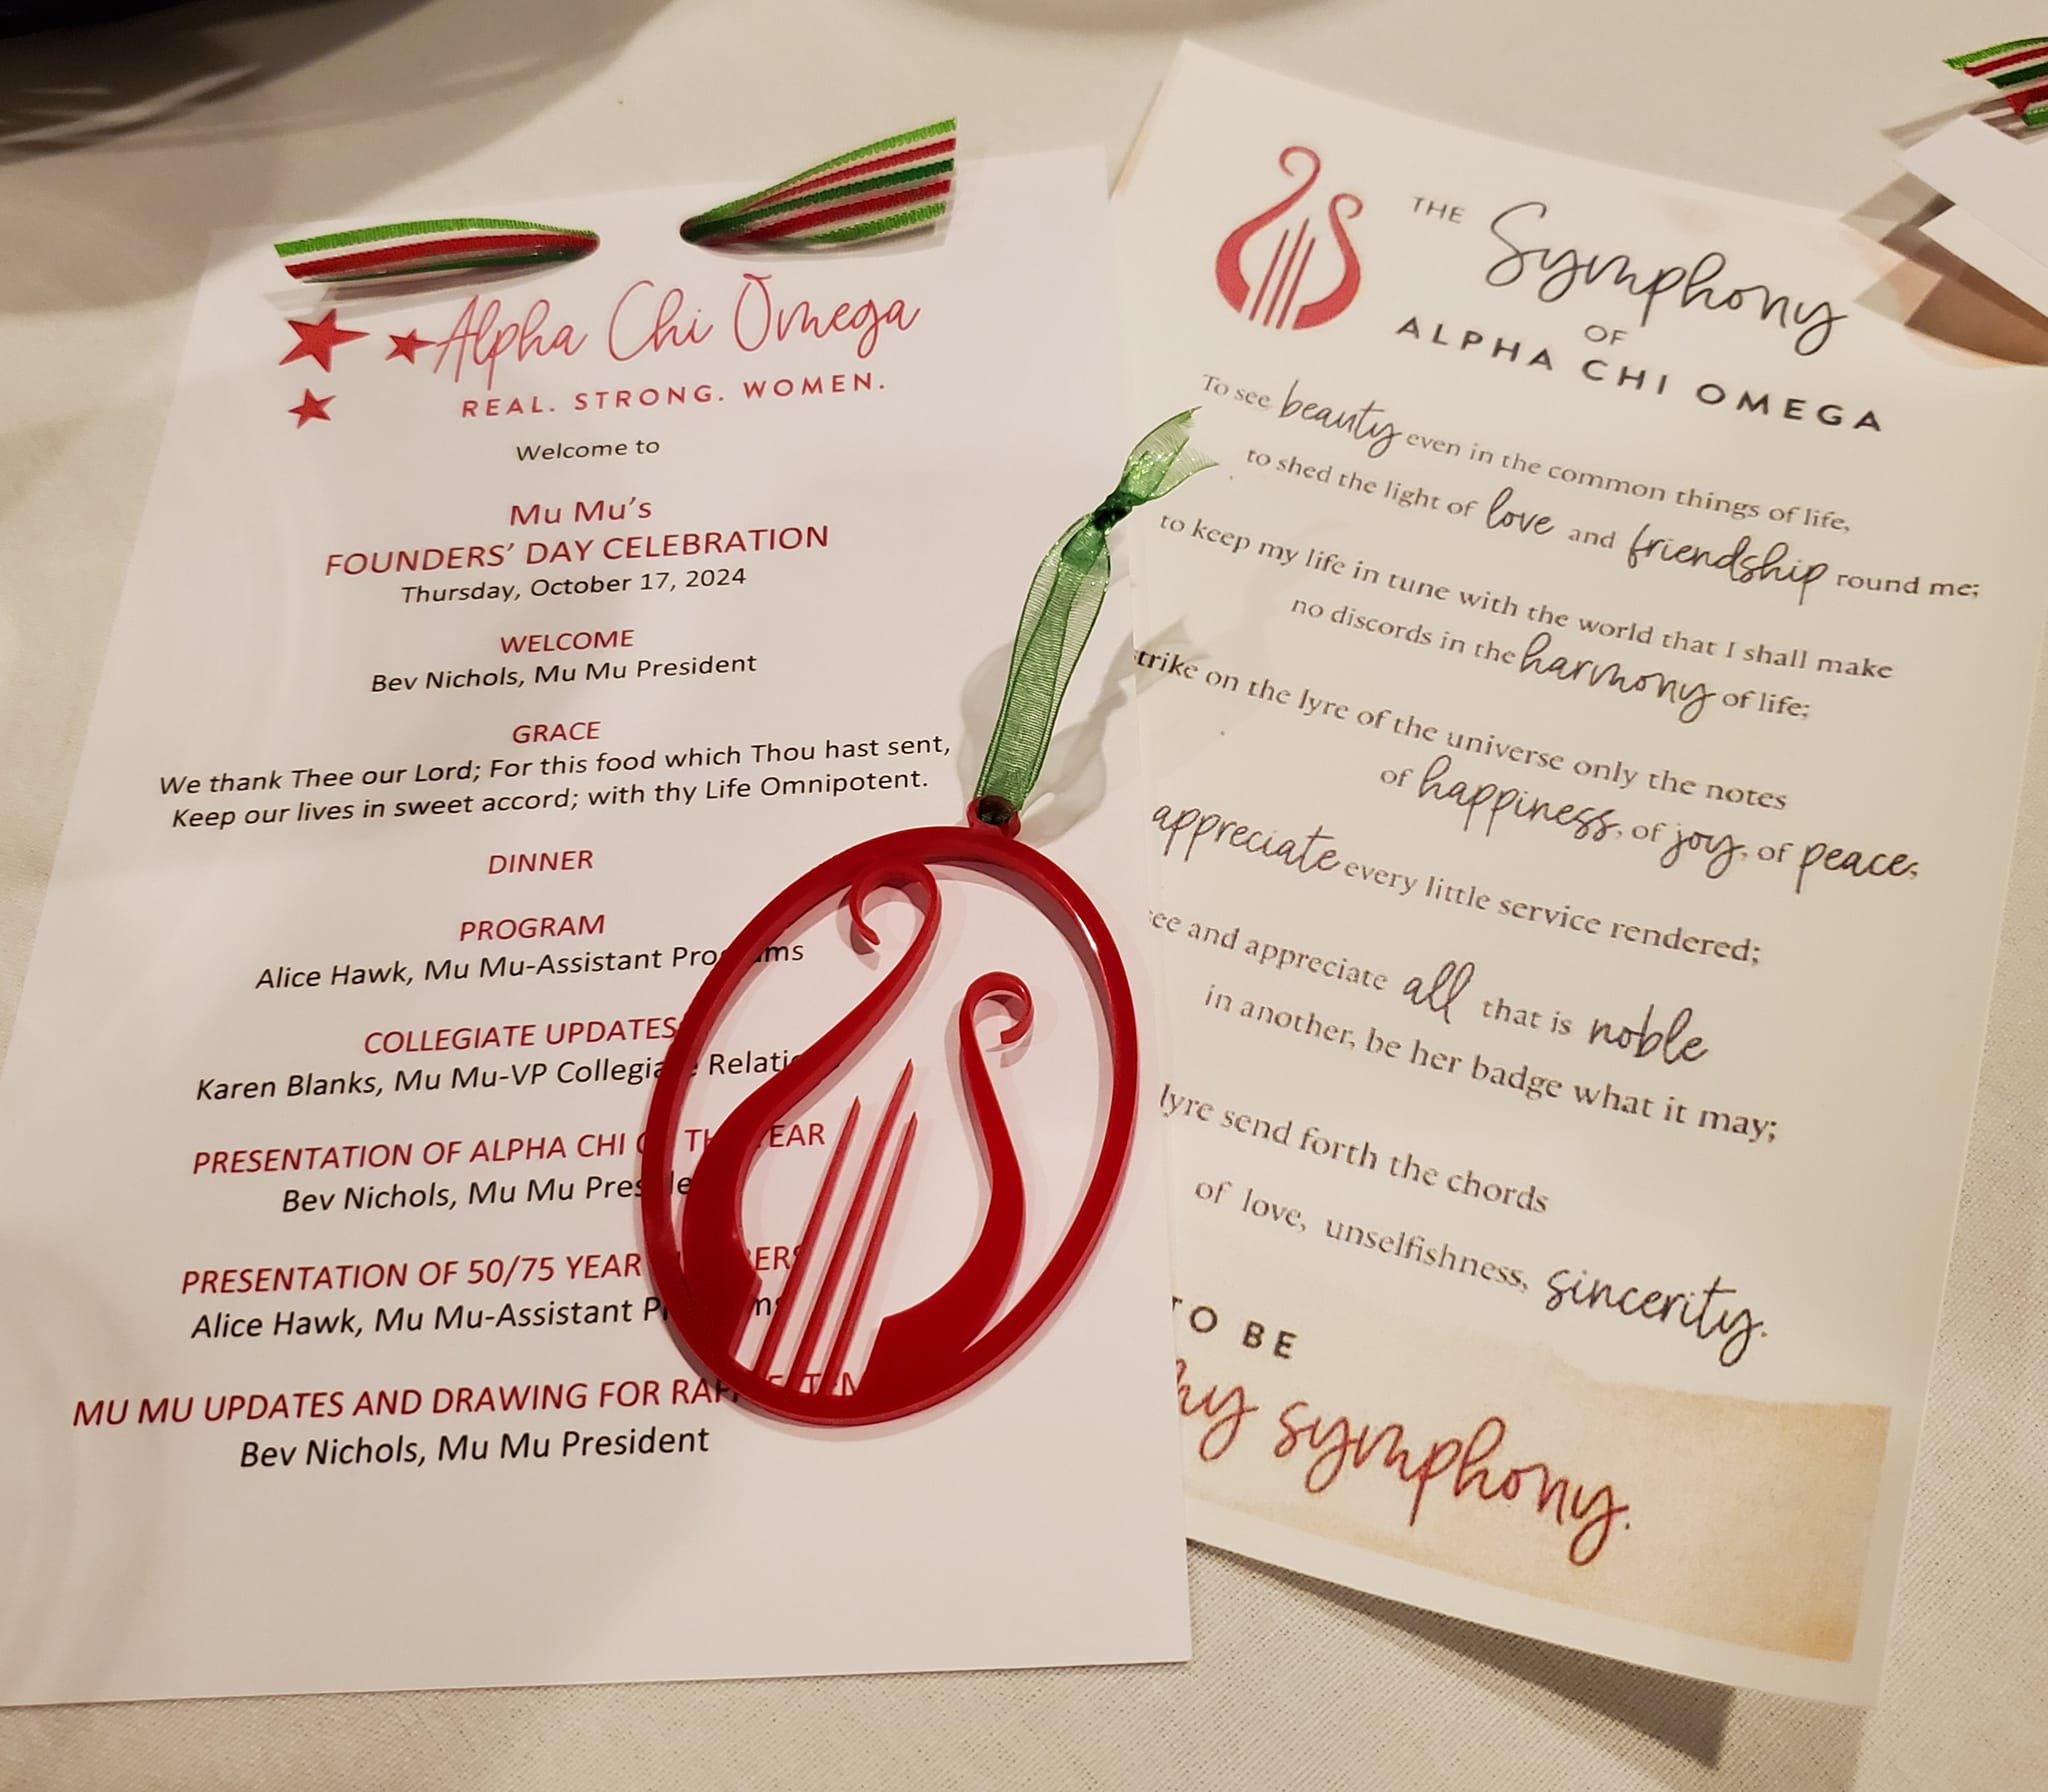 Alpha Chi Omega
REAL. STRONG. WOMEN.
Welcome to
Mu Mu's
FOUNDERS' DAY CELEBRATION
Thursday, October 17, 2024
WELCOME
Bev Nichols, Mu Mu President
GRACE
We thank Thee our Lord; For this food which Thou hast sent,
Keep our lives in sweet accord; with thy Life Omnipotent.
DINNER
PROGRAM
Alice Hawk, Mu Mu-Assistant Programs
COLLEGIATE UPDATES
Karen Blanks, Mu Mu-VP Collegiate Relations
PRESENTATION OF ALPHA CHI OF THE YEAR
Bev Nichols, Mu Mu President
PRESENTATION OF 50/75 YEAR MEMBERS
Alice Hawk, Mu Mu-Assistant Programs
MU MU UPDATES AND DRAWING FOR RAFFLE ITEM
Bev Nichols, Mu Mu President
THE Symphony
OF
ALPHA CHI OMEGA
To see beauty even in the common things of life,
to shed the light of love and friendship round me;
to keep my life in tune with the world that I shall make
no discords in the harmony of life;
strike on the lyre of the universe only the notes
of happiness, of joy, of peace;
appreciate every little service rendered;
see and appreciate all that is noble
in another, be her badge what it may;
lyre send forth the chords
of love, unselfishness, sincerity.
TO BE
my symphony.